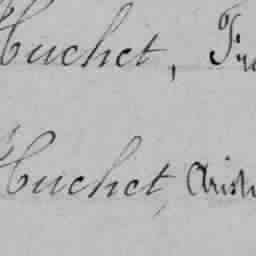 Huchet, Fra
Huchet, Arist